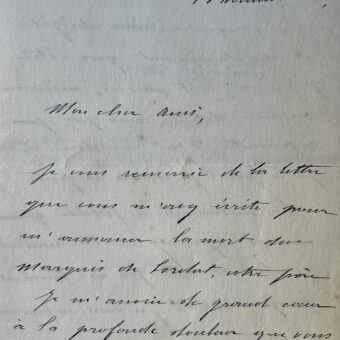 Mon cher ami,
Je vous remercie de la lettre
que vous m'avez écrite pour
m'annoncer la mort du
Marquis de Lordat, votre père
Je m'associe de grand cœur
à la profonde douleur que vous